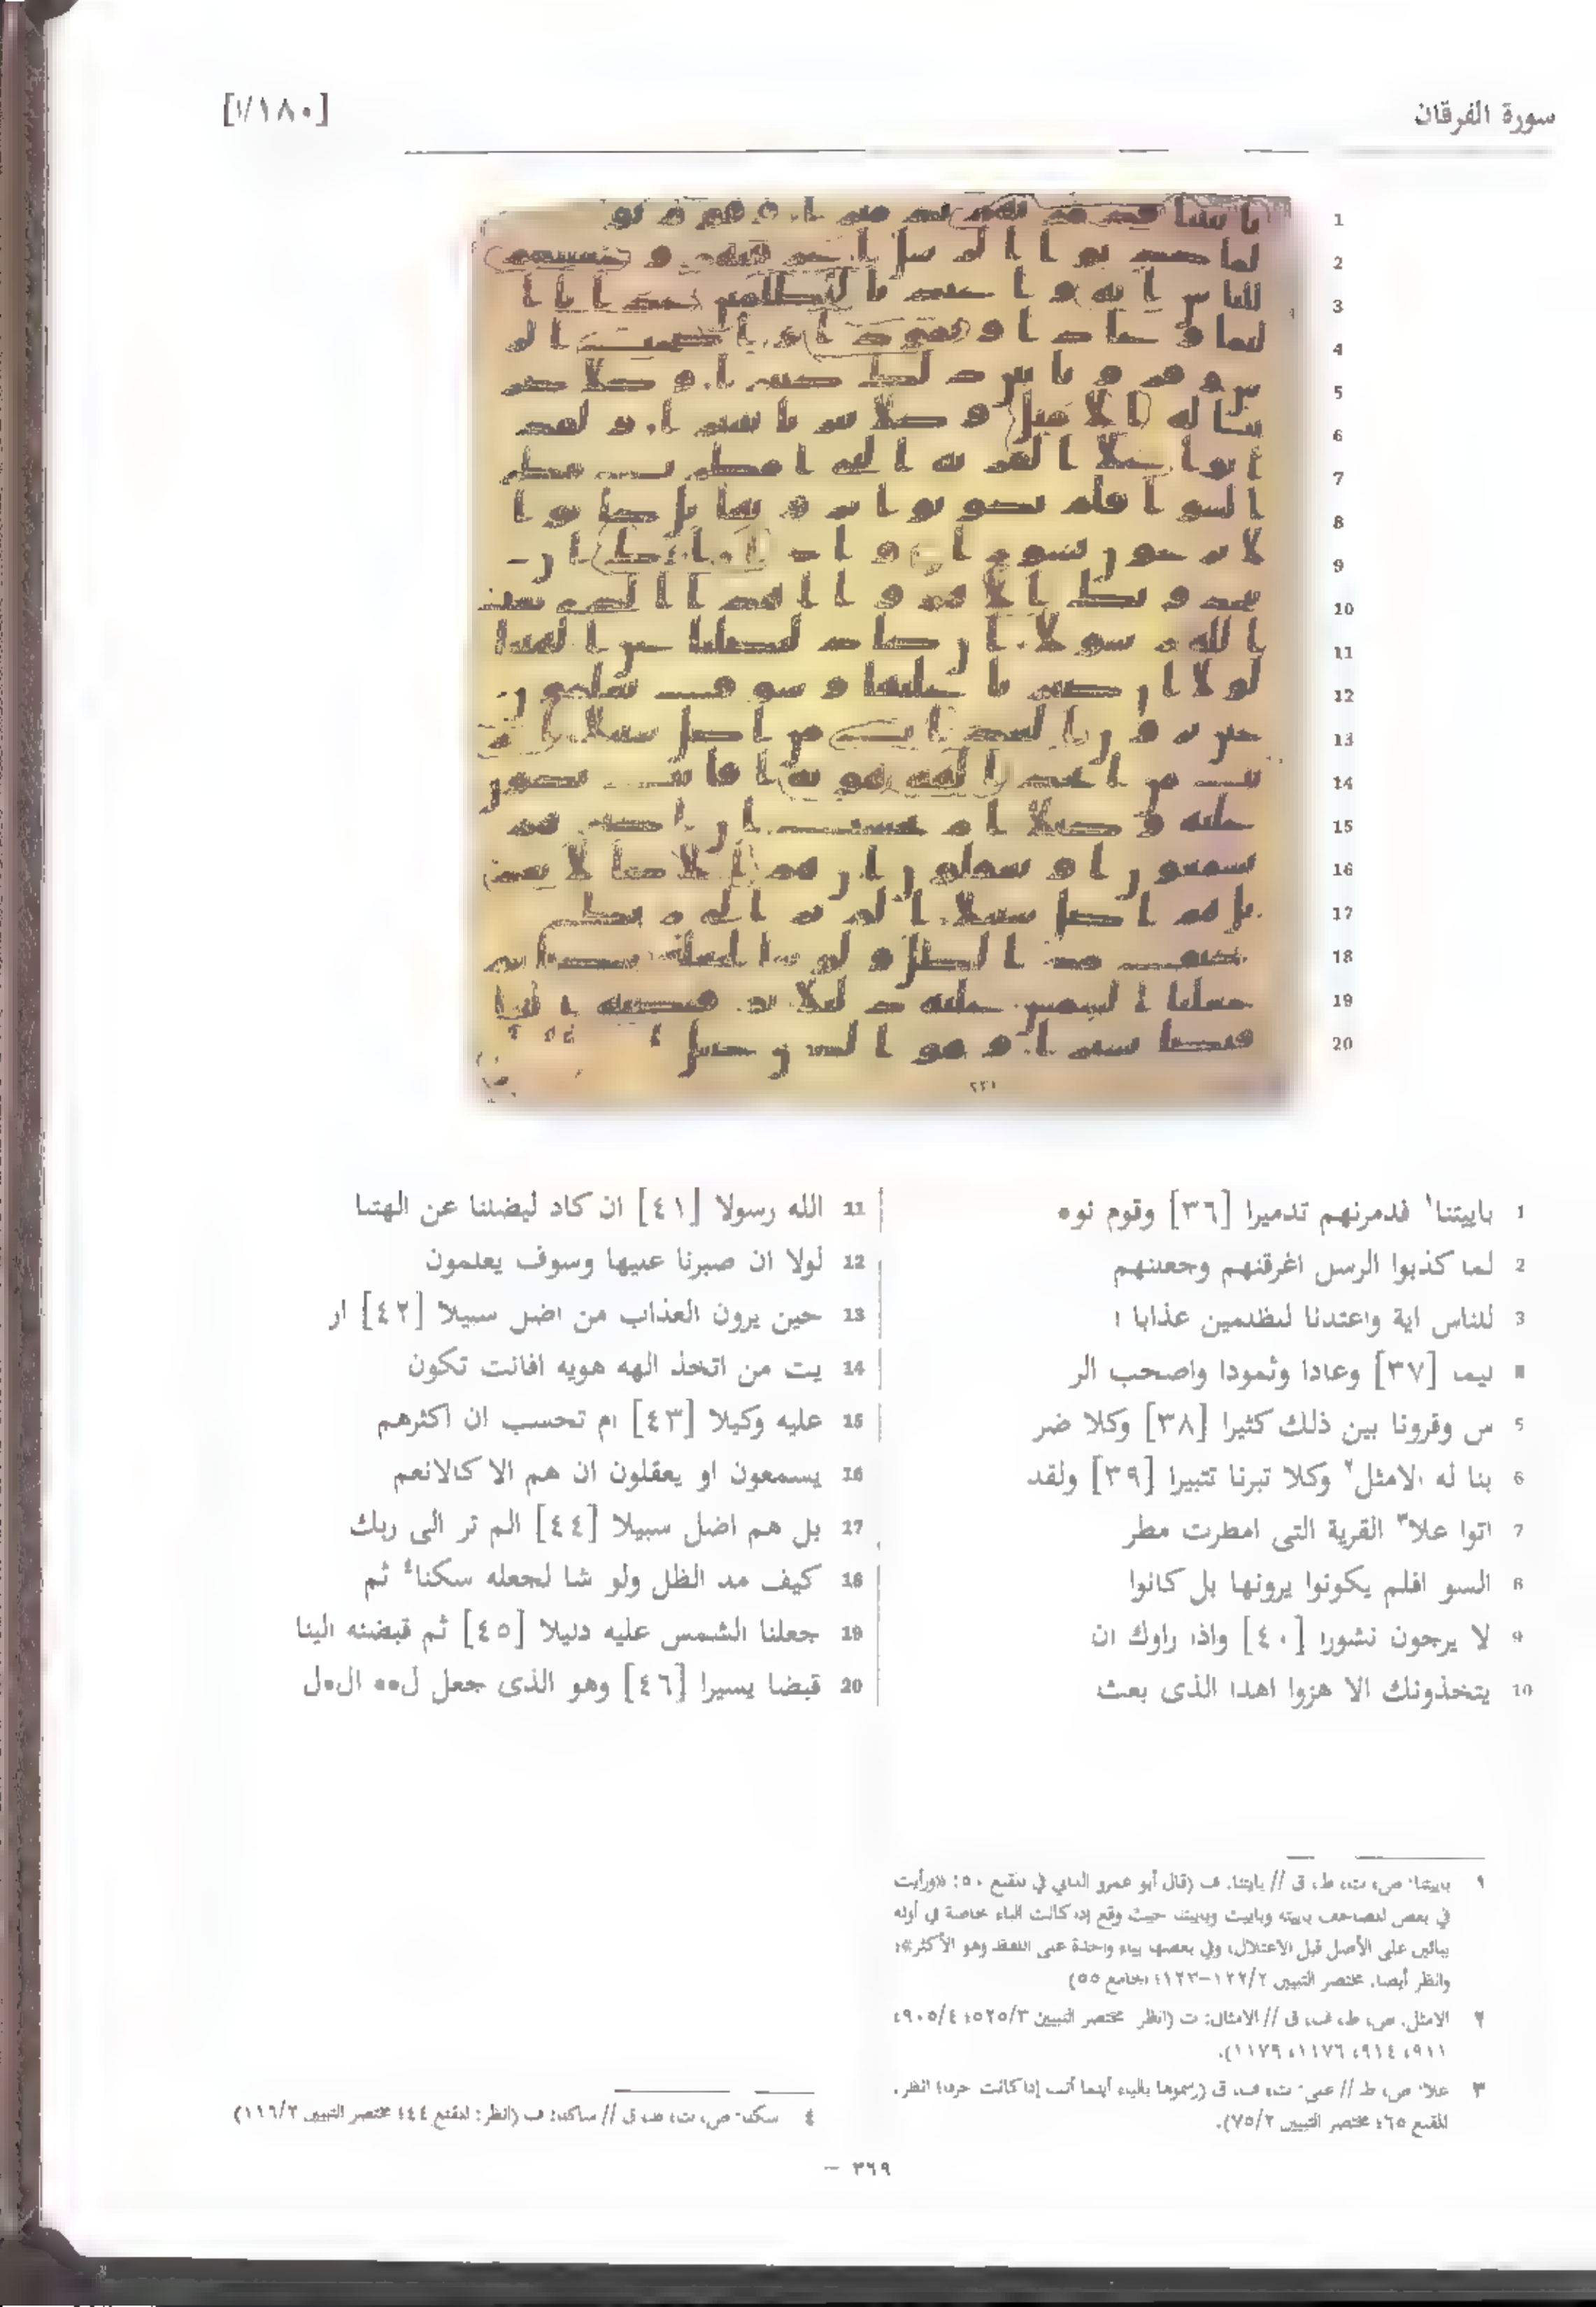 سورة الفرقان
[١٨٠/ا]
1 باييتنا١ فدمرنهم تدميرا [٣٦] وقوم نوه
2 لما كذبوا الرسل اغرقنهم وجعلنهم
3 للناس اية واعتدنا للظلمين عذابا ا
ليما [٣٧] وعادا وثمودا واصحب الر
5 س وقرونا بين ذلك كثيرا [٣٨] وكلا ضر
6 بنا له الامثل٢ وكلا تبرنا تتبيرا [٣٩] ولقد
7 اتوا علا٣ القرية التى امطرت مطر
8 السو افلم يكونوا يرونها بل كانوا
9 لا يرجون نشورا [٤٠] واذا راوك ان
10 يتخذونك الا هزوا اهذا الذى بعث
11 الله رسولا [٤١] ان كاد ليضلنا عن الهتنا
12 لولا ان صبرنا عليها وسوف يعلمون
13 حين يرون العذاب من اضل سبيلا [٤٢] ار
14 يت من اتخذ الهه هويه افانت تكون
15 عليه وكيلا [٤٣] ام تحسب ان اكثرهم
16 يسمعون او يعقلون ان هم الا كالانعم
17 بل هم اضل سبيلا [٤٤] الم تر الى ربك
18 كيف مد الظل ولو شا لجعله سكنا٤ ثم
19 جعلنا الشمس عليه دليلا [٤٥] ثم قبضنه الينا
20 قبضا يسيرا [٤٦] وهو الذى جعل ل٥٥ ال٥ل
١ باييتنا: ص، ت، ط، ق // بايتنا: ف (قال أبو عمرو الداني في المقنع ٥٠: «ورأيت
في بعض المصاحف باييته وباييت وباييتنا حيث وقع إذا كانت الباء خاصة في أوله
بيائين على الأصل قبل الاعتلال، وفي بعضها بياء واحدة على اللفظ وهو الأكثر»؛
وانظر أيضا: مختصر التبيين ١٢٢/٢-١٢٣؛ الجامع ٥٥)
٢ الامثل: ص، ط، ف، ق // الامثال: ت (انظر مختصر التبيين ٥٢٥/٣؛ ٩٠٥/٤؛
٩١١، ٩١٤، ١١٧٦، ١١٧٩).
٣ علا: ص، ط // على: ت، ف، ق (رسموها بالياء أينما أتت إذا كانت حرفا؛ انظر:
المقنع ٦٥؛ مختصر التبيين ٧٥/٢).
٤ سكنا: ص، ت، ط، ق // ساكنا: ف (انظر: المقنع ٤٤؛ مختصر التبيين ١١٦/٢)
٣٦٩ –